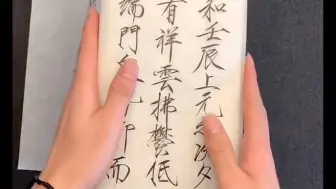 和壬辰上元之次夕
有祥雲拂鬱低
端門仰而